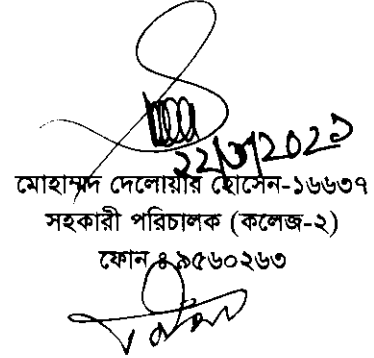 ২২/৩/২০২১
মোহাম্মদ দেলোয়ার হোসেন-১৬৬৩৭
সহকারী পরিচালক (কলেজ-২)
ফোন ঃ ৯৫৬০২৬৩